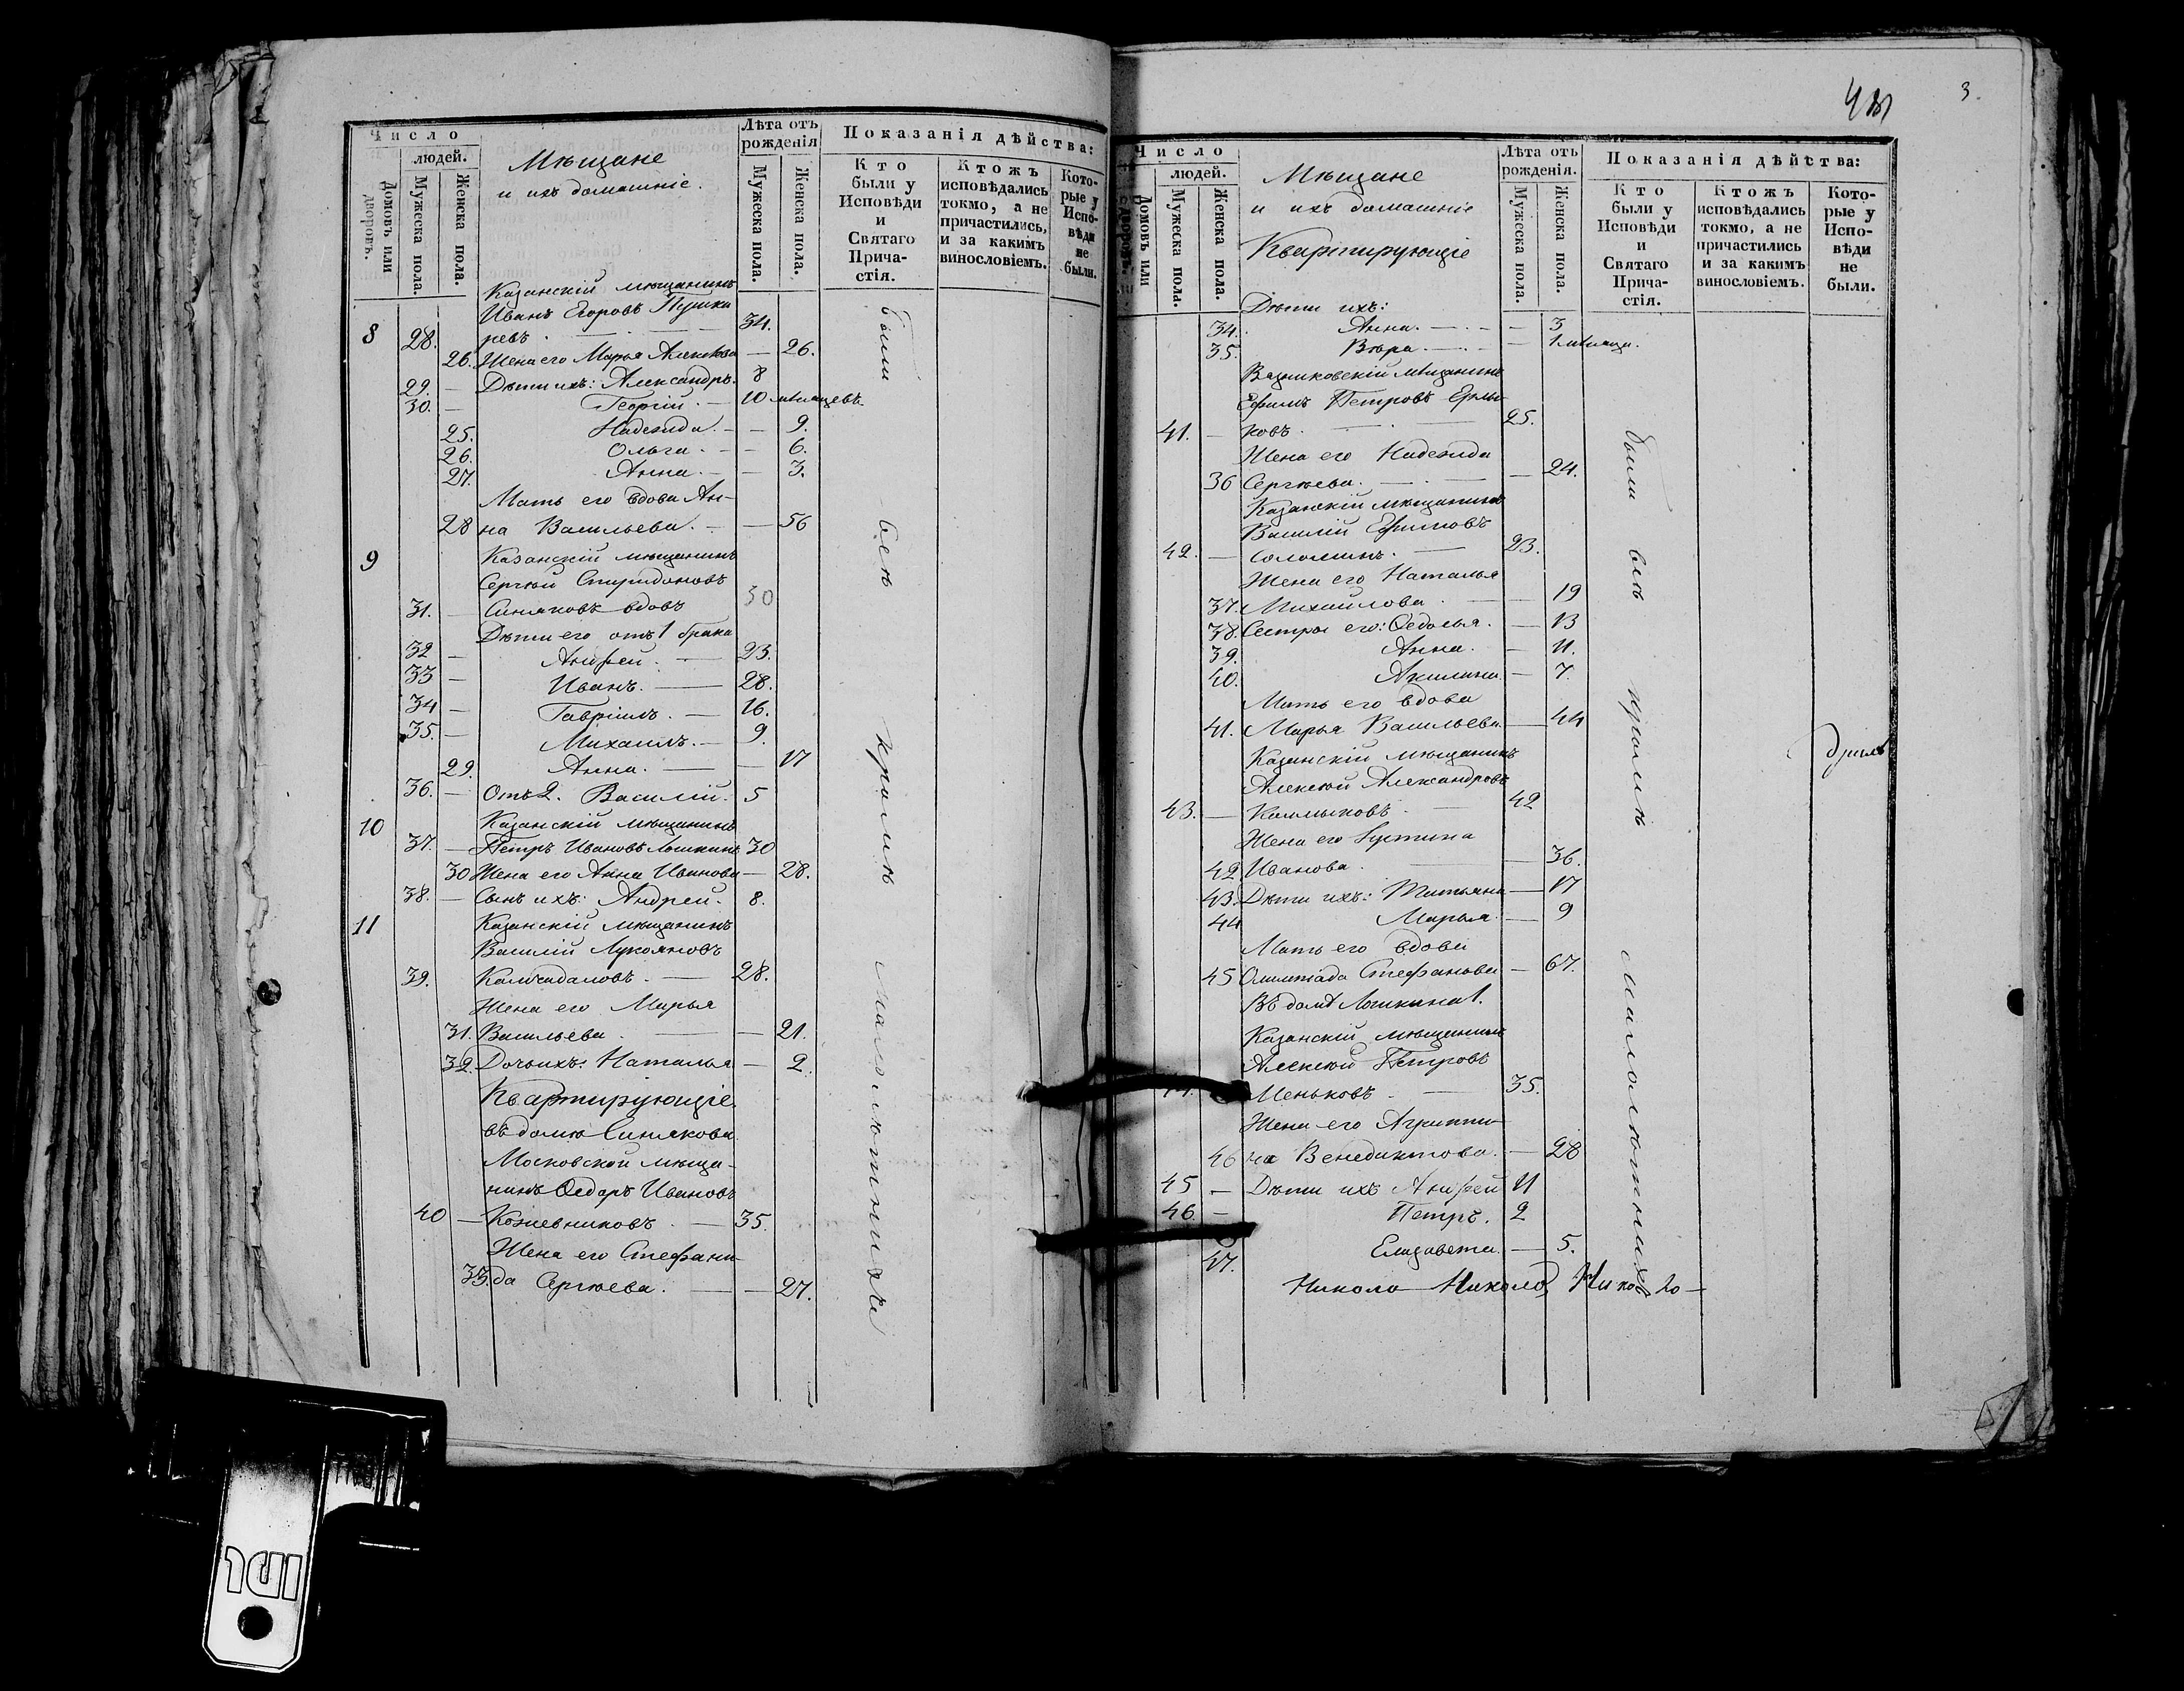 Число
людей.
Домовъ или дворовъ.
Мужеска пола.
Женска пола.
Мѣщане
и ихъ домашніе.
Лѣта отъ рожденія
Мужеска пола.
Женска пола.
Показанія дѣйства:
Кто были у Исповѣди и Святаго Прича-стія.
Ктожъ исповѣдались токмо, а не причастились, и за какимъ винословіемъ.
Кото-рые у Испо-вѣди не были.
Казанскій мѣщанинъ
Иванъ Егоровъ Пушка
8 28. ревъ. 34.
26. Жена его Марья Алексѣева — 26.
29. — Дѣти ихъ: Александръ. 8
30. — Георгій. — 10 мѣсяцевъ
25. Надежда. — — 9.
26. Ольга. — — 6.
27. Анна. — — 3.
Мать его вдова Ан-
28 на Васильева. — — 56
9 Казанскій мѣщанинъ
Сергѣй Спиридоновъ
31. — Синяковъ вдовъ 50
Дѣти его отъ 1 брака
32 — Андрей. — 23.
33 — Иванъ. — 28.
34 — Гавріилъ. — 16.
35. — Михаилъ. — 9.
29. Анна. — — 17
36. — Отъ 2. Василій. 5
10 Казанскій мѣщанинъ
37. — Петръ Ивановъ Лошкинъ 30
30 Жена его Анна Иванова — 28.
38. — Сынъ ихъ: Андрей. 8.
11 Казанскій мѣщанинъ
Василій Лукояновъ
39. Камчадаловъ. — 28.
Жена его Марья
31. Васильева. — — 21.
32. Дочь ихъ: Наталья — 2.
Квартирующіе
въ домѣ Синякова
Московской мѣща-
нинъ Ѳедоръ Ивановъ
40 — Кожевниковъ. — 35.
Жена его Стефани-
33. да Сергѣева. — — 27.
были всѣ кромѣ малолѣтнихъ
3.
Число
людей.
Домовъ или дворовъ.
Мужеска пола.
Женска пола.
Мѣщане
и ихъ домашніе
Квартирующіе
Лѣта отъ рожденія.
Мужеска пола.
Женска пола.
Показанія дѣйства:
Кто были у Исповѣди и Святаго Прича-стія.
Ктожъ исповѣдались токмо, а не причастились и за какимъ винословіемъ.
Кото-рые у Испо-вѣди не были.
Дѣти ихъ:
34. Анна. — — 3
35. Вѣра. — — 1 мѣсяца.
Вязниковскій мѣщанинъ
Ефимъ Петровъ
41. — ковъ. — 25.
Жена его Надежда
36 Сергѣева. — — 24.
Казанскій мѣщанинъ
Василій Ефимовъ
42. — Соломинъ. — 23.
Жена его Наталья
37. Михайлова. — — 19
38. Сестры его: Ѳедосья. — 13
39. Анна. — 11.
40. Акилина — 7.
Мать его вдова
41. Марья Васильева — 44
Казанскій мѣщанинъ
Алексѣй Александровъ
43. — Калмыковъ. — 42
Жена его Іустина
42 Иванова. — — 36.
43. Дѣти ихъ: Татьяна — 17
44 Марья — 9
Мать его вдова
45 Олимпіада Стефанова — 67.
Въ домѣ Лошкина 1.
Казанскій мѣщанинъ
Алексѣй Петровъ
Меньковъ. — 35.
Жена его Агриппи-
46 на Венедиктова. — 28
45 — Дѣти ихъ Андрей 11
46. — Петръ. 2
47. Елизавета. — 5.
были всѣ кромѣ малолѣтнихъ